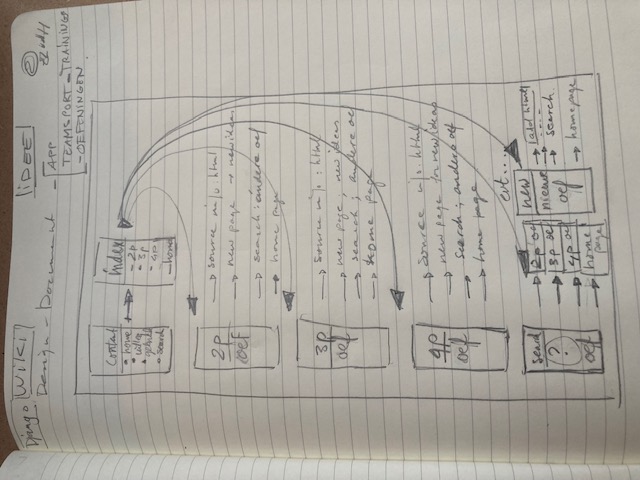 Django WIKI
IDEE
2
Design - Document
- APP
TEAMSPORT - TRAININGS
- OEFENINGEN
Content
• home
• uitleg
•
• search
index
- 2p
- 3p
- 4p
- home
2p
oef
→ source html
→ new page → new ideas
→ search : andere oef
→ home page
3p
oef
→ source html
→ new page ; new ideas
→ search ; andere oef
→ home page
4p
oef
→ source html
→ new page for new ideas
→ search ; andere oef
→ home page
evt....
search
?
oef
→ 2p oef
→ 3p oef
→ 4p oef
→ home page
new
nieuwe
oef
→ add html
→ ....
→ search
→ homepage